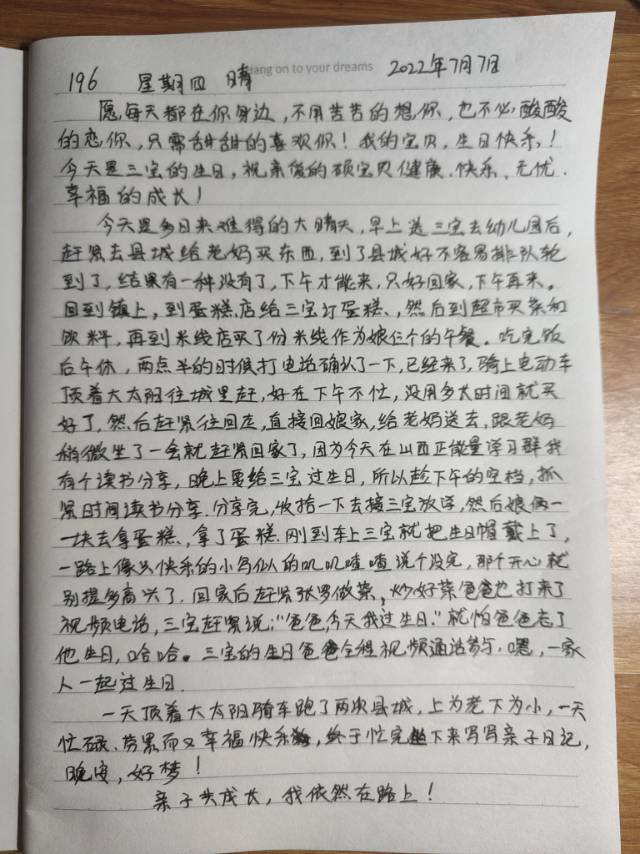 Hang on to your dreams
196 星期四 晴 2022年7月7日
愿每天都在你身边,不用苦苦的想你,也不必酸酸
的恋你,只需甜甜的喜欢你!我的宝贝,生日快乐!
今天是三宝的生日,祝亲爱的硕宝贝健康、快乐、无忧、
幸福的成长!
今天是多日来难得的大晴天,早上送三宝去幼儿园后,
赶紧去县城给老妈买东西,到了县城好不容易排队轮
到了,结果有一种没有了,下午才能来,只好回家,下午再来。
回到镇上,到蛋糕店给三宝订蛋糕、,然后到超市买菜和
饮料,再到米线店买了份米线作为娘仨个的午餐。吃完饭
后午休,两点半的时候打电话确认了一下,已经来了,骑上电动车
顶着大太阳往城里赶,好在下午不忙,没用多大时间就买
好了,然后赶紧往回走,直接回娘家,给老妈送去,跟老妈
稍微坐了一会就赶紧回家了,因为今天在山西正能量学习群我
有个读书分享,晚上要给三宝过生日,所以趁下午的空档,抓
紧时间读书分享.分享完,收拾一下去接三宝放学,然后娘俩一
一块去拿蛋糕、,拿了蛋糕.刚到车上三宝就把生日帽戴上了,
一路上像只快乐的小鸟似的叽叽喳喳说个没完,那个开心就
别提多高兴了.回家后赶紧张罗做菜,炒好菜爸爸也打来了
视频电话,三宝赶紧说:"爸爸,今天我过生日."就怕爸爸忘了
他生日,哈哈。三宝的生日爸爸全程视频通话参与.嘿,一家
人一起过生日.
一天顶着大太阳骑车跑了两次县城,上为老下为小,一天
忙碌、劳累而又幸福快乐,终于忙完坐下来写写亲子日记,
晚安,好梦!
亲子共成长,我依然在路上!